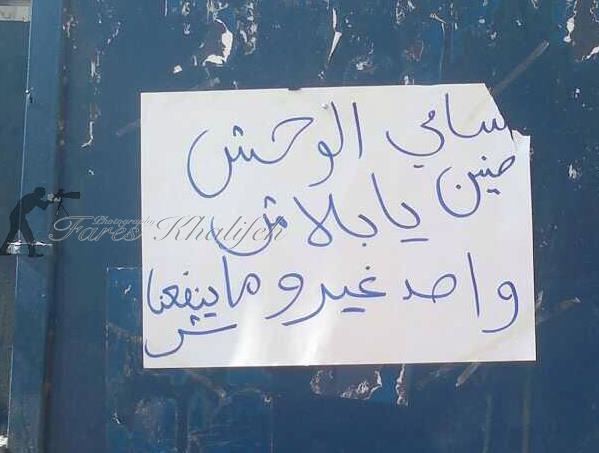 سامي الوحش
منين يا بلاش
واحد غيرو ما ينفعنا
ش
Photography
Fares Khalifeh